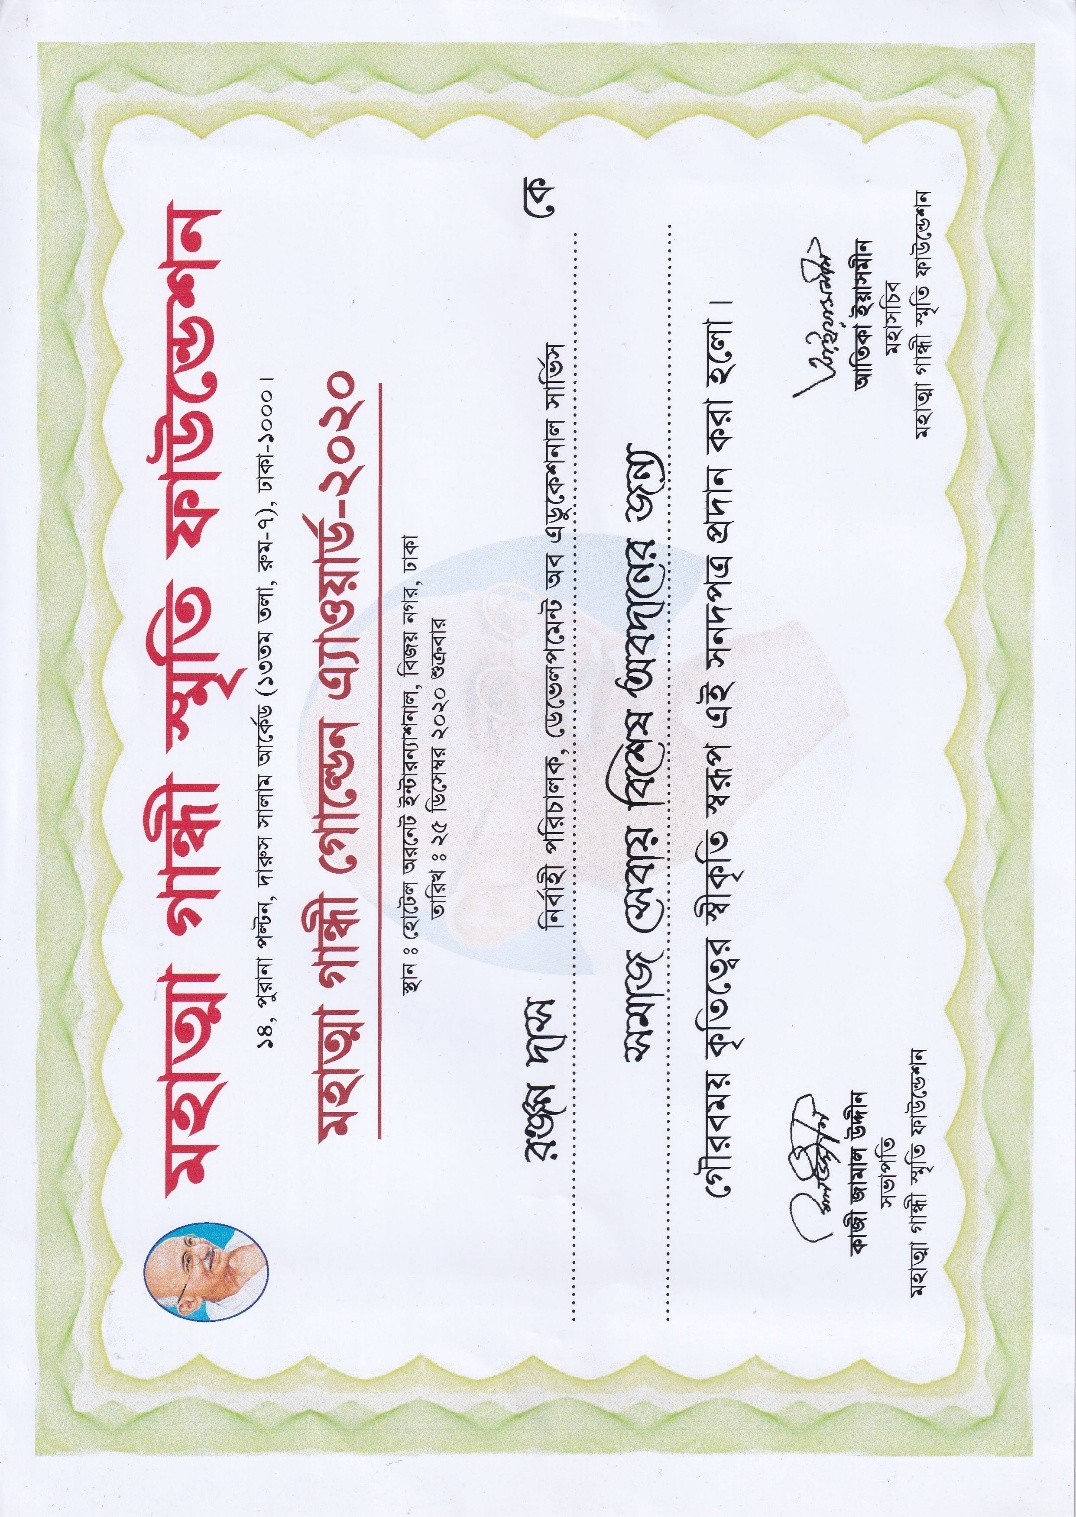 মহাত্মা গান্ধী স্মৃতি ফাউন্ডেশন
১৪, পুরানা পল্টন, দারুস সালাম আর্কেড (১৩তম তলা, রুম-৭), ঢাকা-১০০০।
মহাত্মা গান্ধী গোল্ডেন এ্যাওয়ার্ড-২০২০
স্থান : হোটেল অরনেট ইন্টারন্যাশনাল, বিজয় নগর, ঢাকা
তারিখ : ২৫ ডিসেম্বর ২০২০ শুক্রবার
রঞ্জন দাস নির্বাহী পরিচালক, ডেভেলপমেন্ট অব এডুকেশনাল সার্ভিস কে
সমাজ সেবায় বিশেষ অবদানের জন্য
গৌরবময় কৃতিত্বের স্বীকৃতি স্বরূপ এই সনদপত্র প্রদান করা হলো।
কাজী জামাল উদ্দীন
সভাপতি
মহাত্মা গান্ধী স্মৃতি ফাউন্ডেশন
আতিকা ইয়াসমীন
মহাসচিব
মহাত্মা গান্ধী স্মৃতি ফাউন্ডেশন